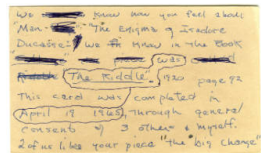 We know how you feel about
"Man-" "The Enigma of Isadore
Ducasse," we know in the Book
was
"The Riddle" 1920 page 92
This card was completed in
April 19 1965, through general
consent of 3 others & myself.
2 of us like your piece "the big change"